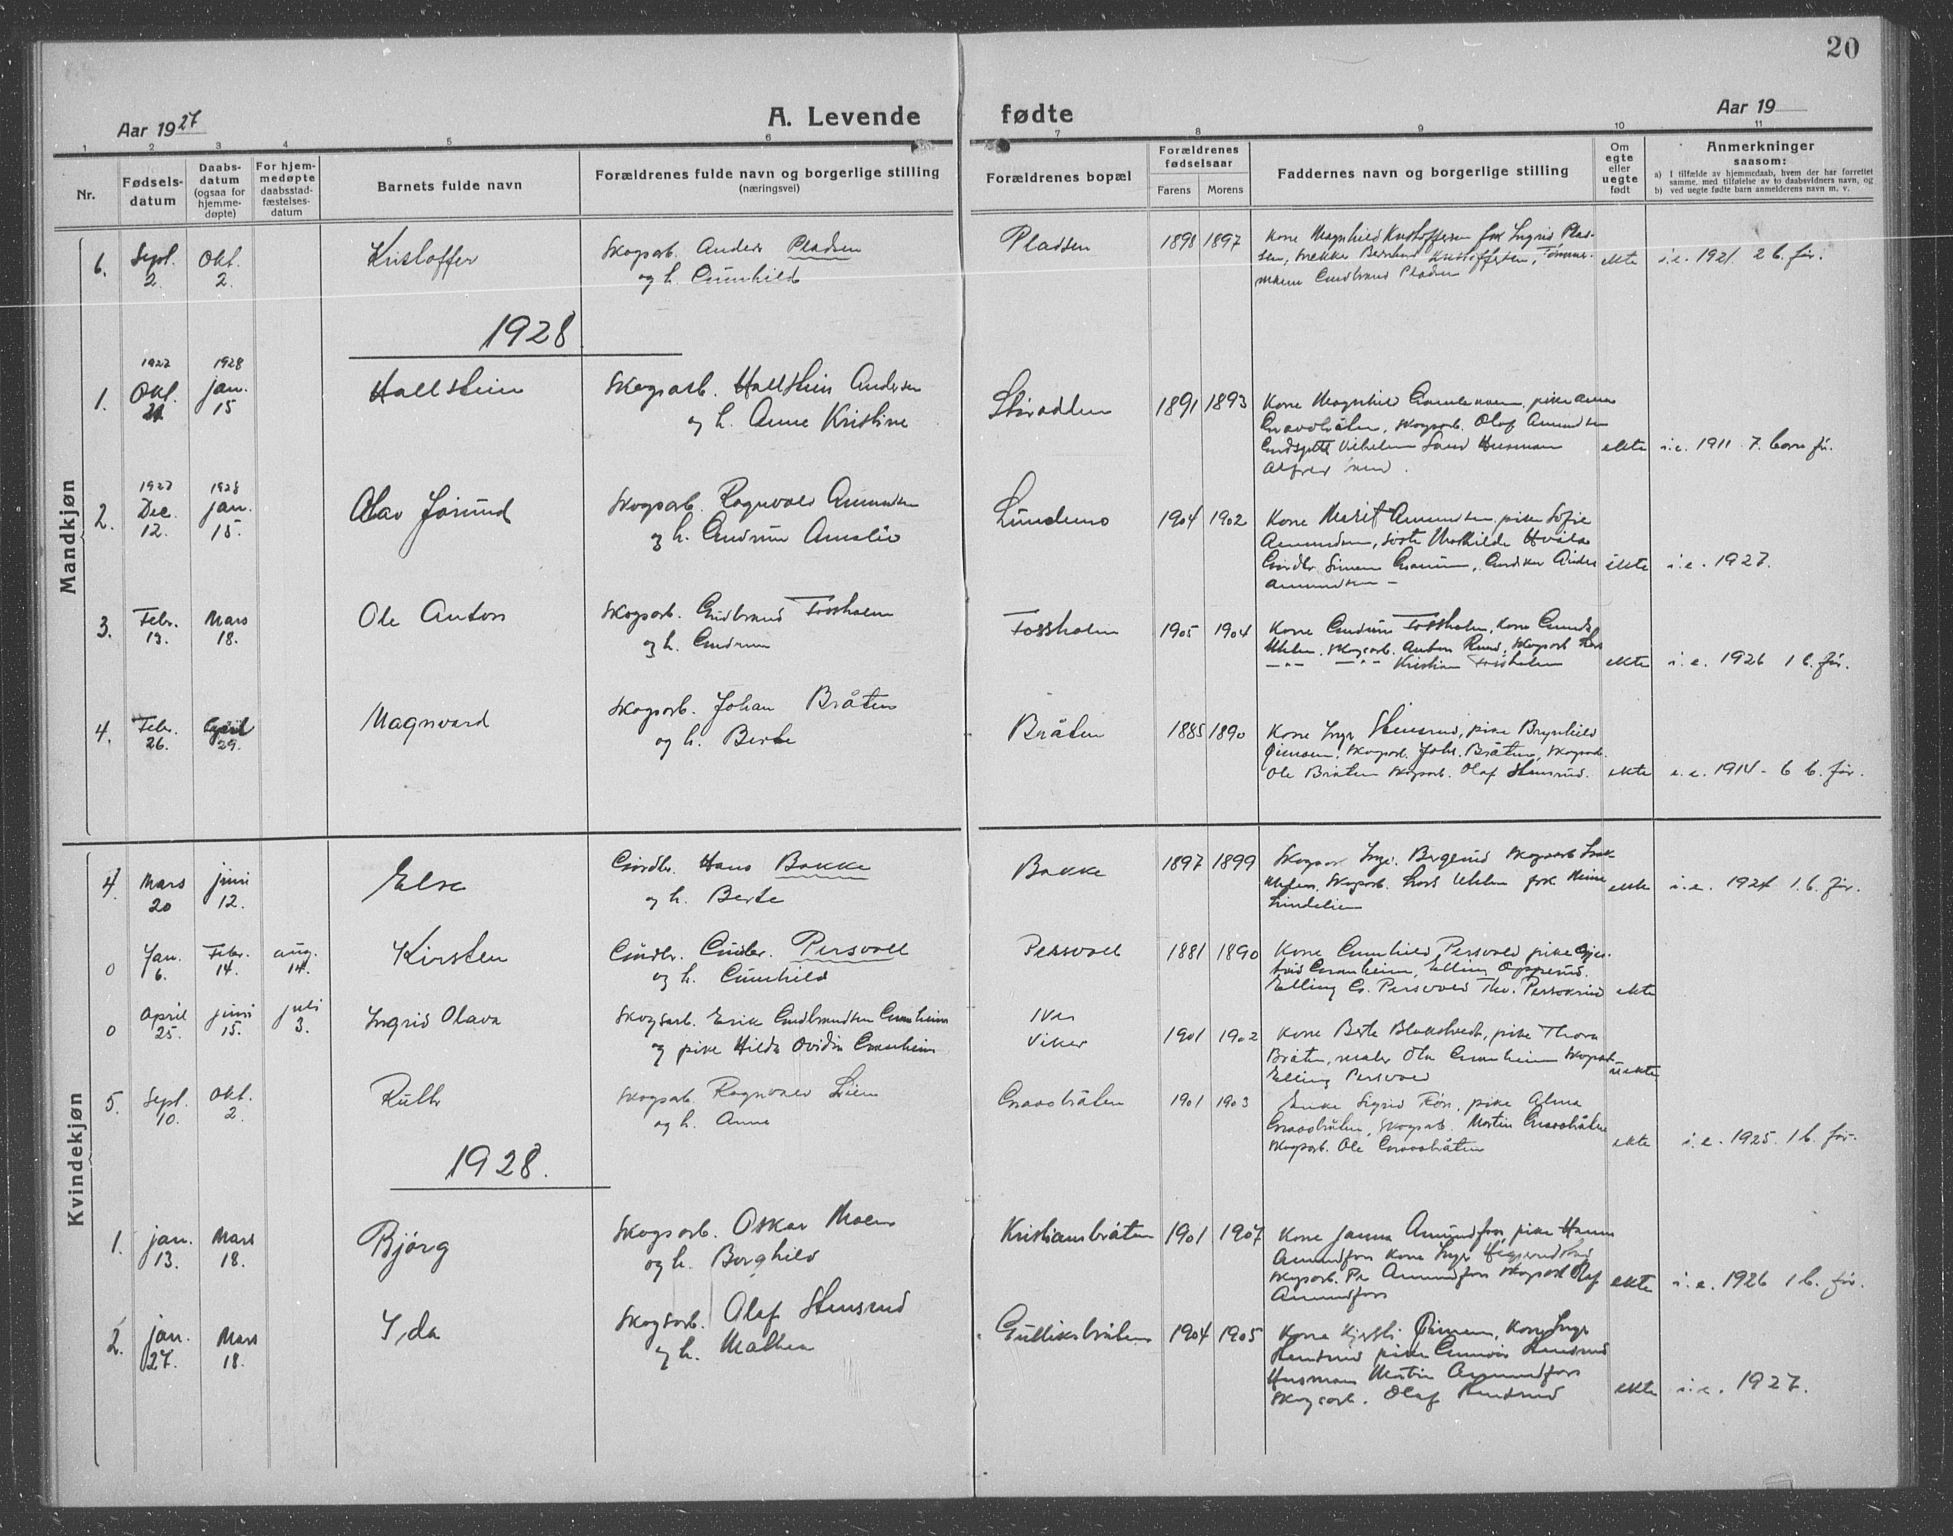 20
Aar 1927
A. Levende
fødte
Aar 19
1 2 3 4 5 6 7 8 9 10 11
Nr.
Fødsels-
datum
Daabs-
datum
(ogsaa for
hjemme-
døpte)
For hjem-
medøpte
daabsstad-
fæstelses-
datum
Barnets fulde navn
Forældrenes fulde navn og borgerlige stilling
(næringsvei)
Forældrenes bopæl
Forældrenes
fødselsaar
Farens Morens
Faddernes navn og borgerlige stilling
Om
egte
eller
uegte
født
Anmerkninger
saasom:
a) I tilfælde av hjemmedaab, hvem der har forrettet
samme, med tilføielse av to daabsvidners navn, og
b) ved uegte fødte barn anmelderens navn m. v.
Mandkjøn
6. Sept. 2. Okt. 2. Kristoffer
Skogsarb. Anders Pladsen
og h. Gunhild
Pladsen 1898 1897
Kone Magnhild Kristoffersen frk Ingrid Plas-
sen, Bernhard Kristoffersen, Tømmer-
mann Gudbrand Pladsen
ekte i.e. 1921. 2 b. før.
1928
1. 1927 Okt. 1928 jan. 15 Hallstein
Skogsarb. Hallstein Andersen
og h. Anne Kristine
1891 1893
Kone Magnhild pike Anna
Gravobråten, skogsarb. Olaf Amundsen
Vilhelm Husmann
Alfred
ekte i.e. 1911. 7. barn før.
2. 1927 Dec. 12. 1928 jan. 15. Olav Jørund
Skogsarb. Ragnvald Amundsen
og h. Gudrun Amalie
1904 1902
Kone Marit Amundsen, pike Sofie
Amundsen, Mathilde
Gårdbr. Simen Anders
Amundsen –
ekte i.e. 1927.
3. Febr. 13. Mars 18. Ole Anton
Skogsarb. Gudbrand Fossholm
og h. Gudrun
Fossholm 1905 1904
Kone Gudrun Fossholm, Kone
Uhlen. skogsarb. Anton Ruud, Skogsarb
–"– –"– Kristian Fossholm
ekte i.e. 1926 1 b. før.
4. Febr. 26. April 29. Magnvard
Skogsarb. Johan Bråten
og h. Berte
Bråten 1885 1890
Kone Inga Stensrud, pike Brynhild
skogsarb. Johs. Bråten, skogsarb.
Ole Bråten skogsarb. Olaf Stensrud.
ekte i.e. 1914 – 6 b. før.
Kvindekjøn
4. Mars 20 juni 12. Else
Gårdbr. Hans Bakke
og h. Berte
Bakke 1897 1899
Skogsarb. Berglund skogsarb
Skogsarb. Lars Uhlen frk
Lindelien
ekte i.e. 1924 1. b. før.
0 Jan. 6. Febr. 14. aug. 14. Kirsten
Gårdbr. Gudbr. Persvold
og h. Gunhild
Persvold 1881 1890
Kone Gunhild Persvold pike
Granheim, Elling Opperud.
Elling G. Persvold Thv.
ekte
0 April 25. juni 15. juli 3. Ingrid Olava
Skogsarb. Erik Gudbrandsen Granheim
og pike Hilda Ovidia Granheim
Viker 1901 1902
Kone Berte pike Thora
Bråten, maler Ola Granheim skogsarb.
Elling Persvold
uekte
5. Sept. 10. Okt. 2 Ruth
Skogsarb. Ragnvald Lien
og h. Anna
Gravobråten 1901 1903
Enke Sigrid pike Alma
Gravobråten, skogsarb. Martin Gravobråten
skogsarb. Ole Gravobråten
ekte i.e. 1925. 1 b. før.
1928.
1. jan. 13. Mars 18. Bjørg
Skogsarb. Oskar Moen
og h. Borghild
Kristiansbråten 1901 1907
Kone Janna Amundfors, pike Hanna
Amundfors Kone Inga
skogsarb. Amundfors skogsarb Olaf
Amundfors
ekte i.e. 1926 1 b. før.
2. jan. 27. Mars 18. Ida
Skogsarb. Olaf Stensrud
og h. Mathea
Gulliksbråten 1904 1905
Kone Kjersti Kone Inga
Stensrud pike Stensrud
Husmann Martin Amundfors
Skogsarb. Olaf Stensrud
ekte i.e. 1927.